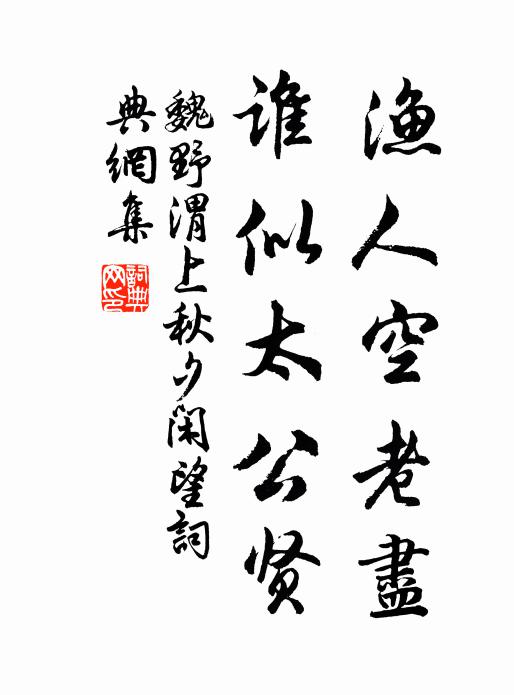 渔人空老盡
誰似太公贤
魏野渭上秋夕閑望詞
典網集
詞典
网印